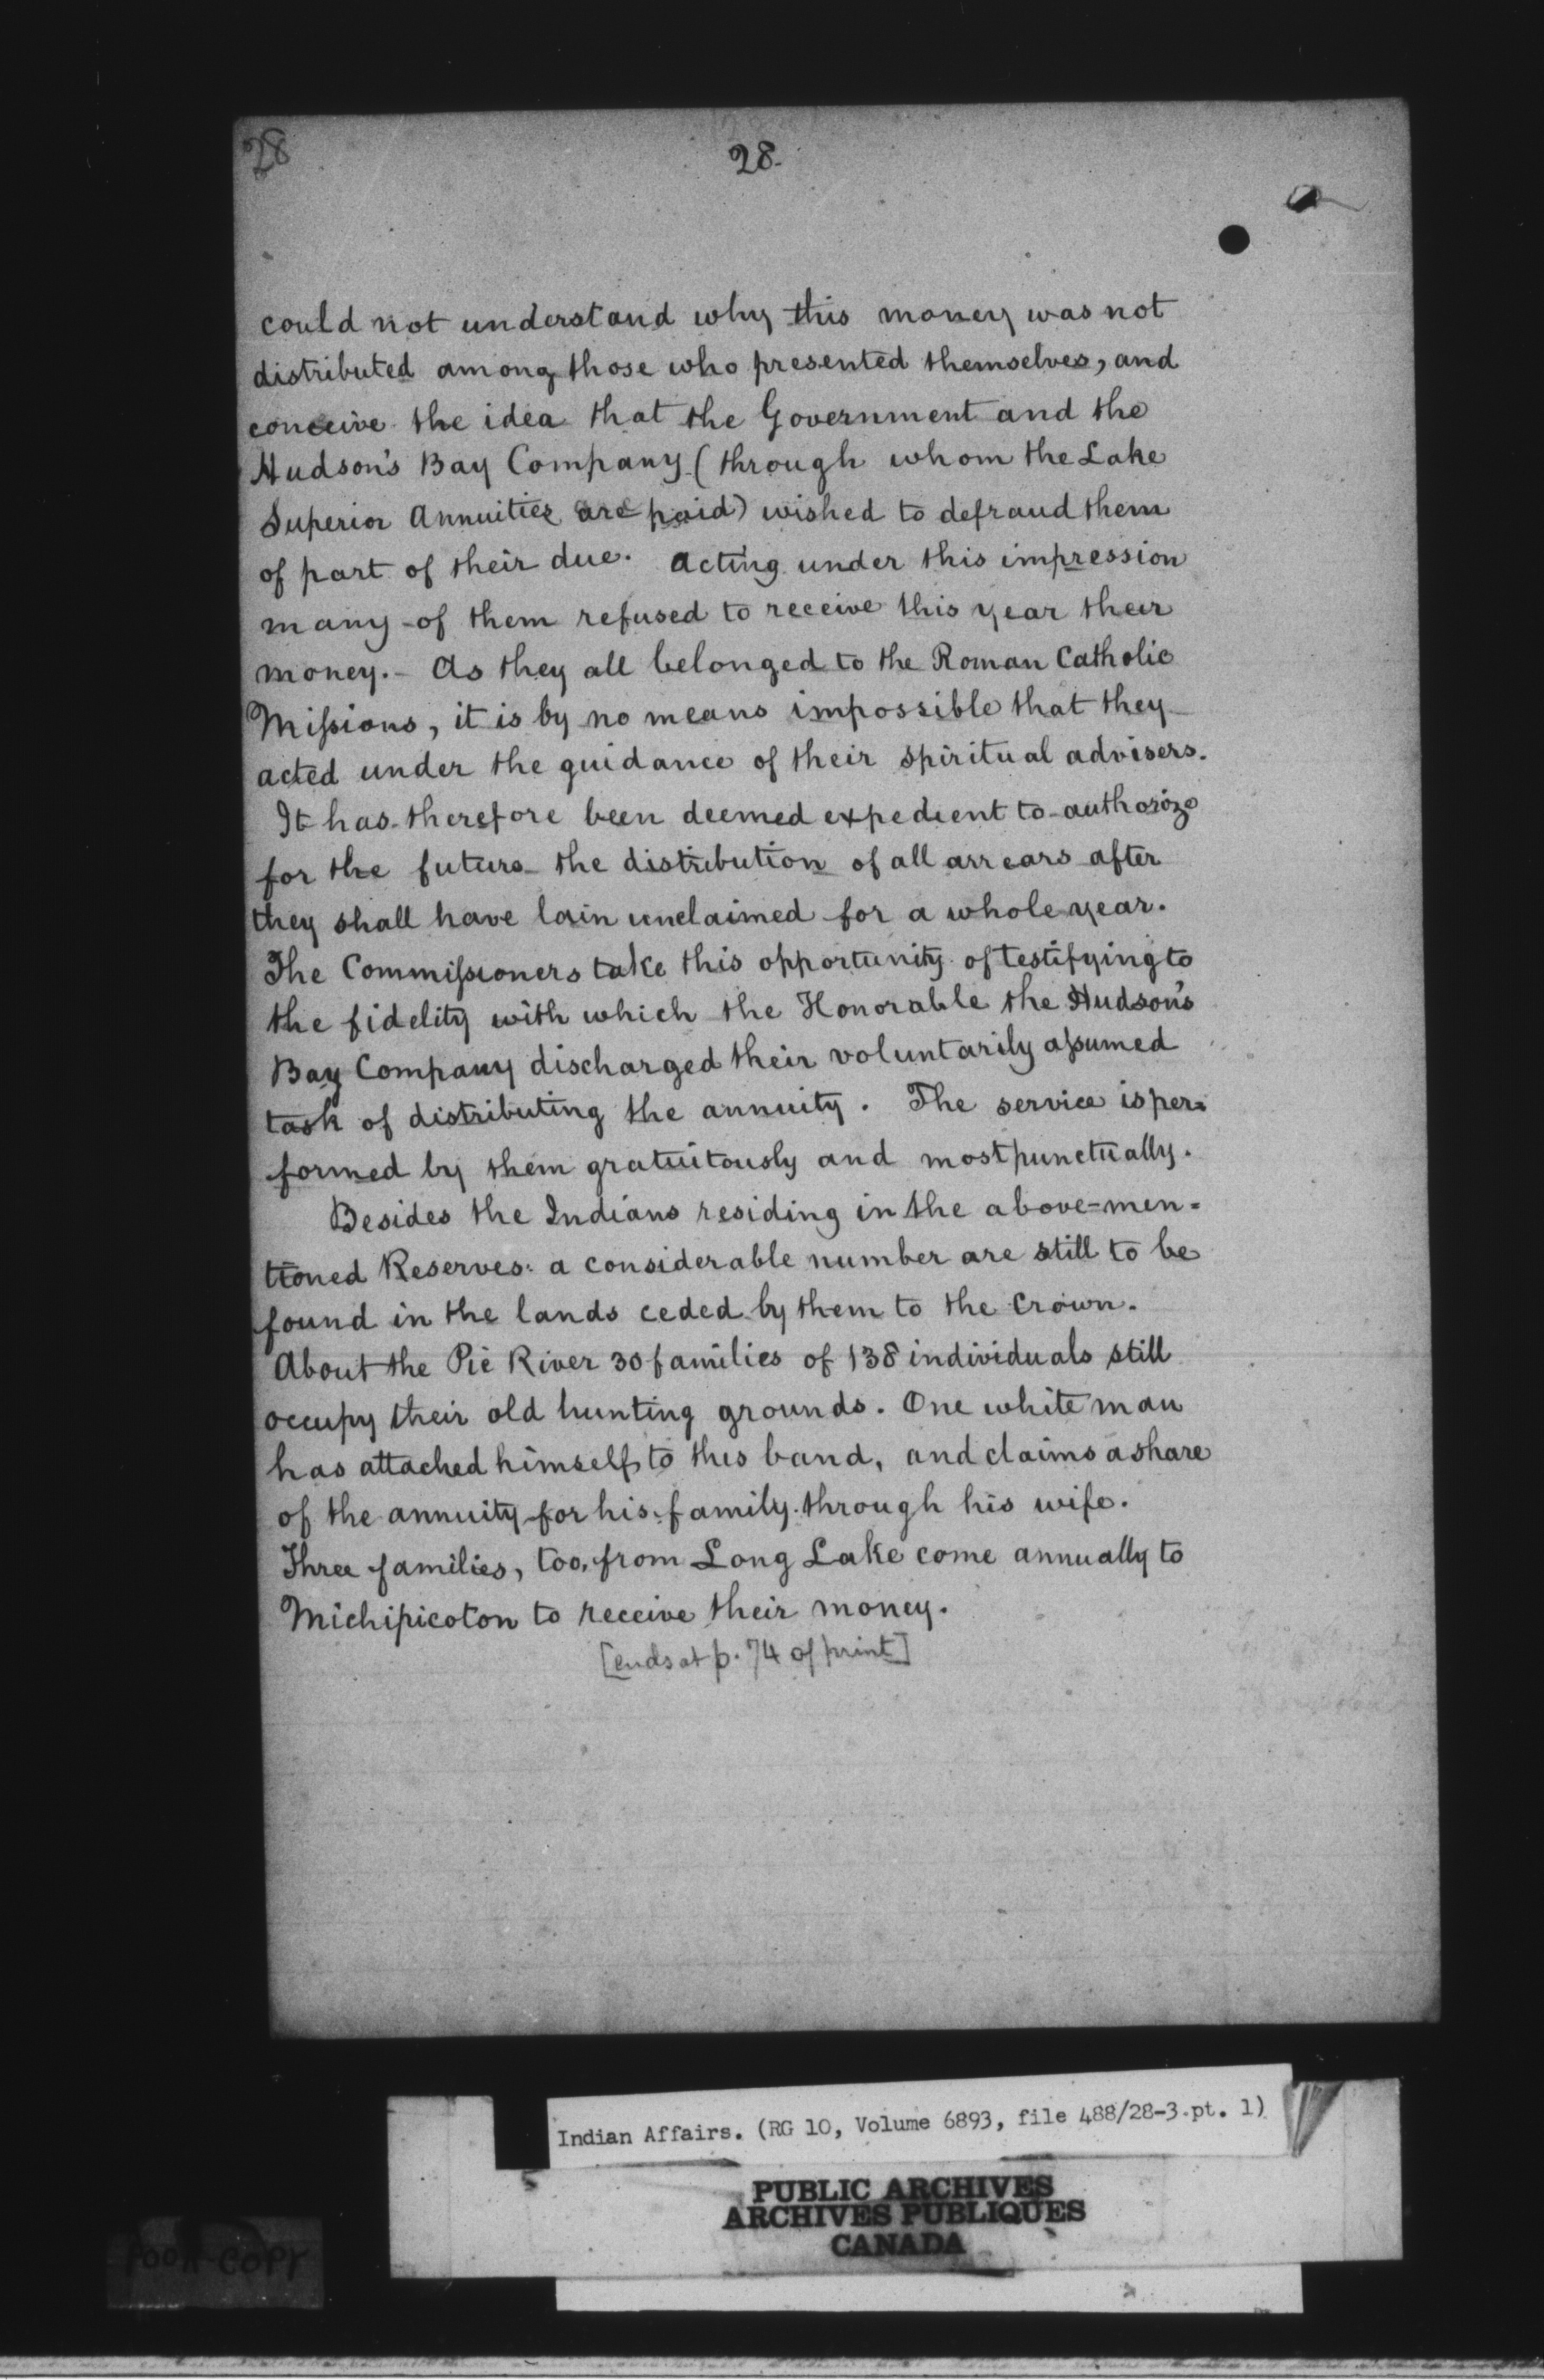 28
28.
could not understand why this money was not
distributed among those who presented themselves, and
conceive the idea that the Government and the
Hudson's Bay Company (through whom the Lake
Superior Annuities are paid) wished to defraud them
of part of their due. Acting under this impression
many of them refused to receive this year their
money.- As they all belonged to the Roman Catholic
Miſsions, it is by no means impossible that they
acted under the guidance of their spiritual advisers.
It has therefore been deemed expedient to authorize
for the future the distribution of all arrears after
they shall have lain unclaimed for a whole year.
The Commiſsioners take this opportunity of testifying to
the fidelity with which the Honorable the Hudson's
Bay Company discharged their voluntarily aſsumed
task of distributing the annuity. The service is per=
formed by them gratuitously and most punctually.
Besides the Indians residing in the above=men=
tioned Reserves: a considerable number are still to be
found in the lands ceded by them to the Crown.
About the Pic River 30 families of 138 individuals still
occupy their old hunting grounds. One white man
has attached himself to this band, and claims a share
of the annuity for his family through his wife.
Three families, too, from Long Lake come annually to
Michipicoton to receive their money.
[ends at p. 74 of print]
Indian Affairs. (RG 10, Volume 6893, file 488/28-3 pt. 1)
PUBLIC ARCHIVES
ARCHIVES PUBLIQUES
CANADA
POOR COPY